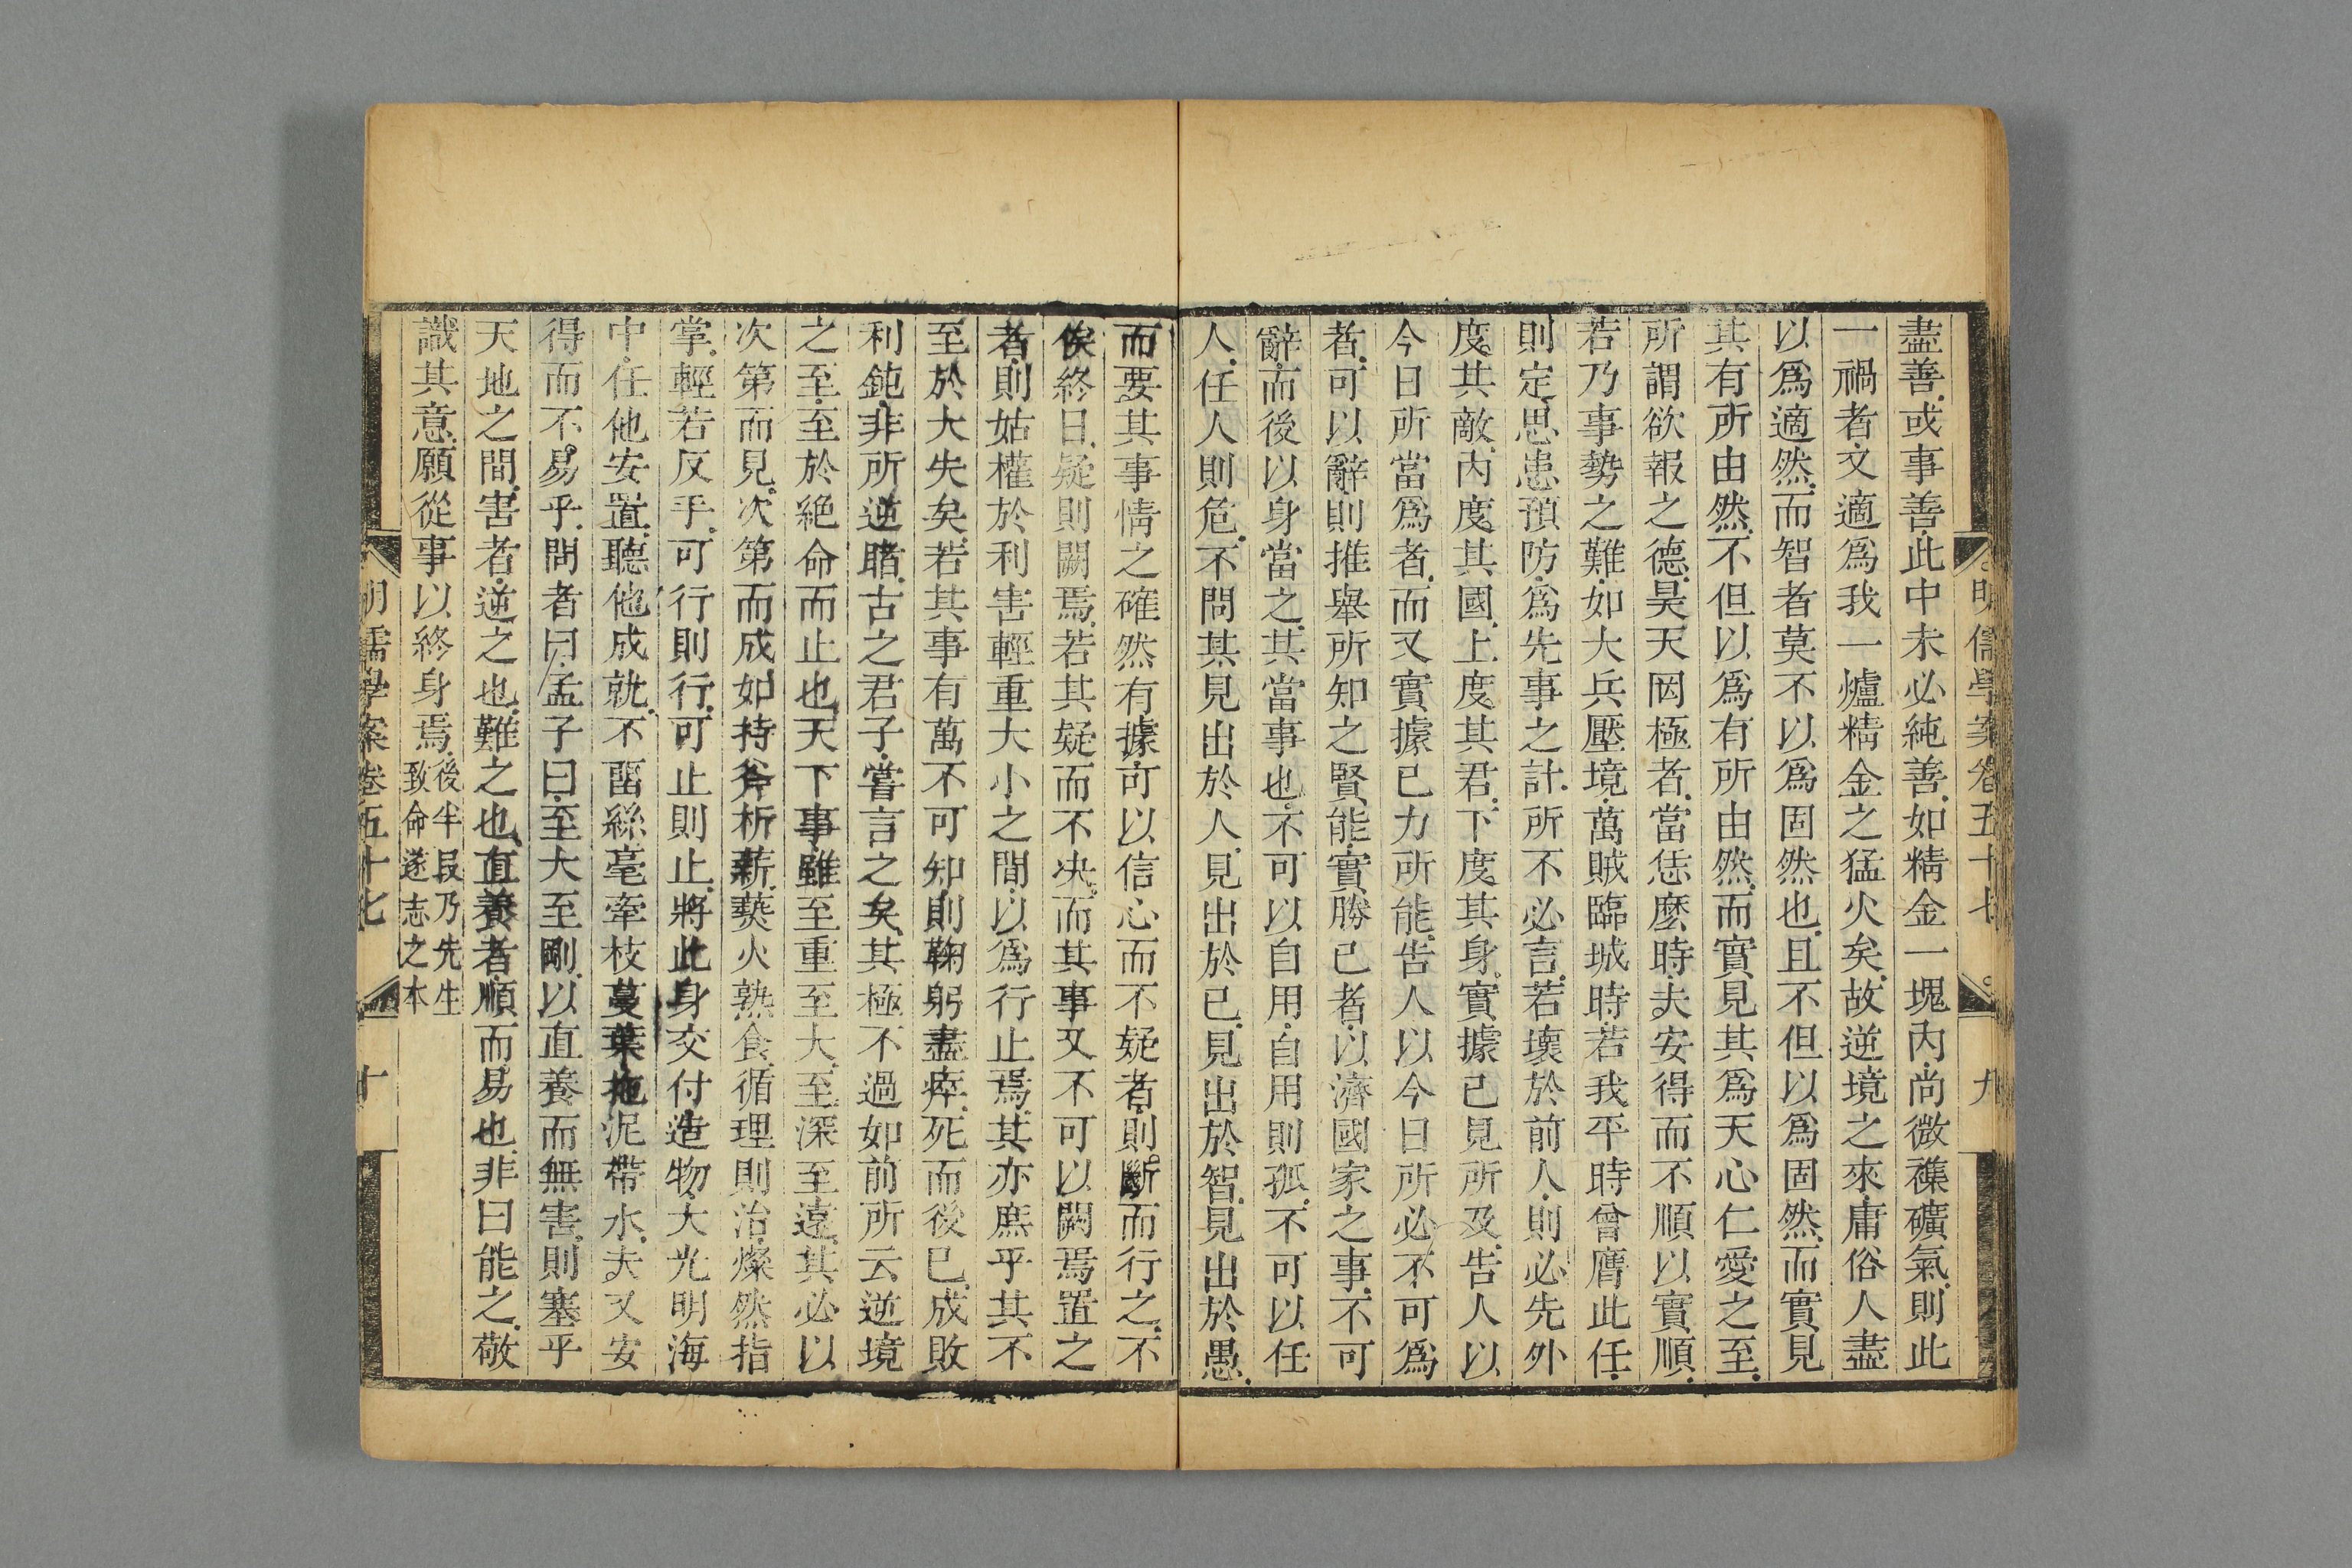 明儒學案卷五十七 九
盡善或事善此中未必純善如精金一塊內尚微襍礦氣則此
一禍者文適爲我一爐精金之猛火矣故逆境之來庸俗人盡
以爲適然而智者莫不以爲固然也且不但以爲固然而實見
其有所由然不但以爲有所由然而實見其爲天心仁愛之至
所謂欲報之德昊天罔極者當恁麼時夫安得而不順以實順
若乃事勢之難如大兵壓境萬賊臨城時若我平時曾膺此任
則定思患預防爲先事之計所不必言若壞於前人則必先外
度其敵內度其國上度其君下度其身實據已見所及告人以
今日所當爲者而又實據已力所能告人以今日所必不可爲
者可以辭則推舉所知之賢能實勝已者以濟國家之事不可
辭而後以身當之其當事也不可以自用自用則孤不可以任
人任人則危不問其見出於人見出於已見出於智見出於愚
而要其事情之確然有據可以信心而不疑者則斷而行之不
俟終日疑則闕焉若其疑而不央而其事又不可以闕焉置之
者則姑權於利害輕重大小之間以爲行止焉其亦庶乎其不
至於大失矣若其事有萬不可知則鞠躬盡瘁死而後已成敗
利鈍非所逆睹古之君子嘗言之矣其極不過如前所云逆境
之至至於絕命而止也天下事雖至重至大至深至遠其必以
次第而見次第而成如持斧析薪爇火熟食循理則治燦然指
掌輕若反手可行則行可止則止將此身交付造物大光明海
中任他安置聽他成就不畱絲毫牽枝蔓葉拖泥帶水夫又安
得而不易乎問者曰孟子曰至大至剛以直養而無害則塞乎
天地之間害者逆之也難之也直養者順而易也非曰能之敬
識其意願從事以終身焉後半段乃先生
致命遂志之本
明儒學案卷五十七 十